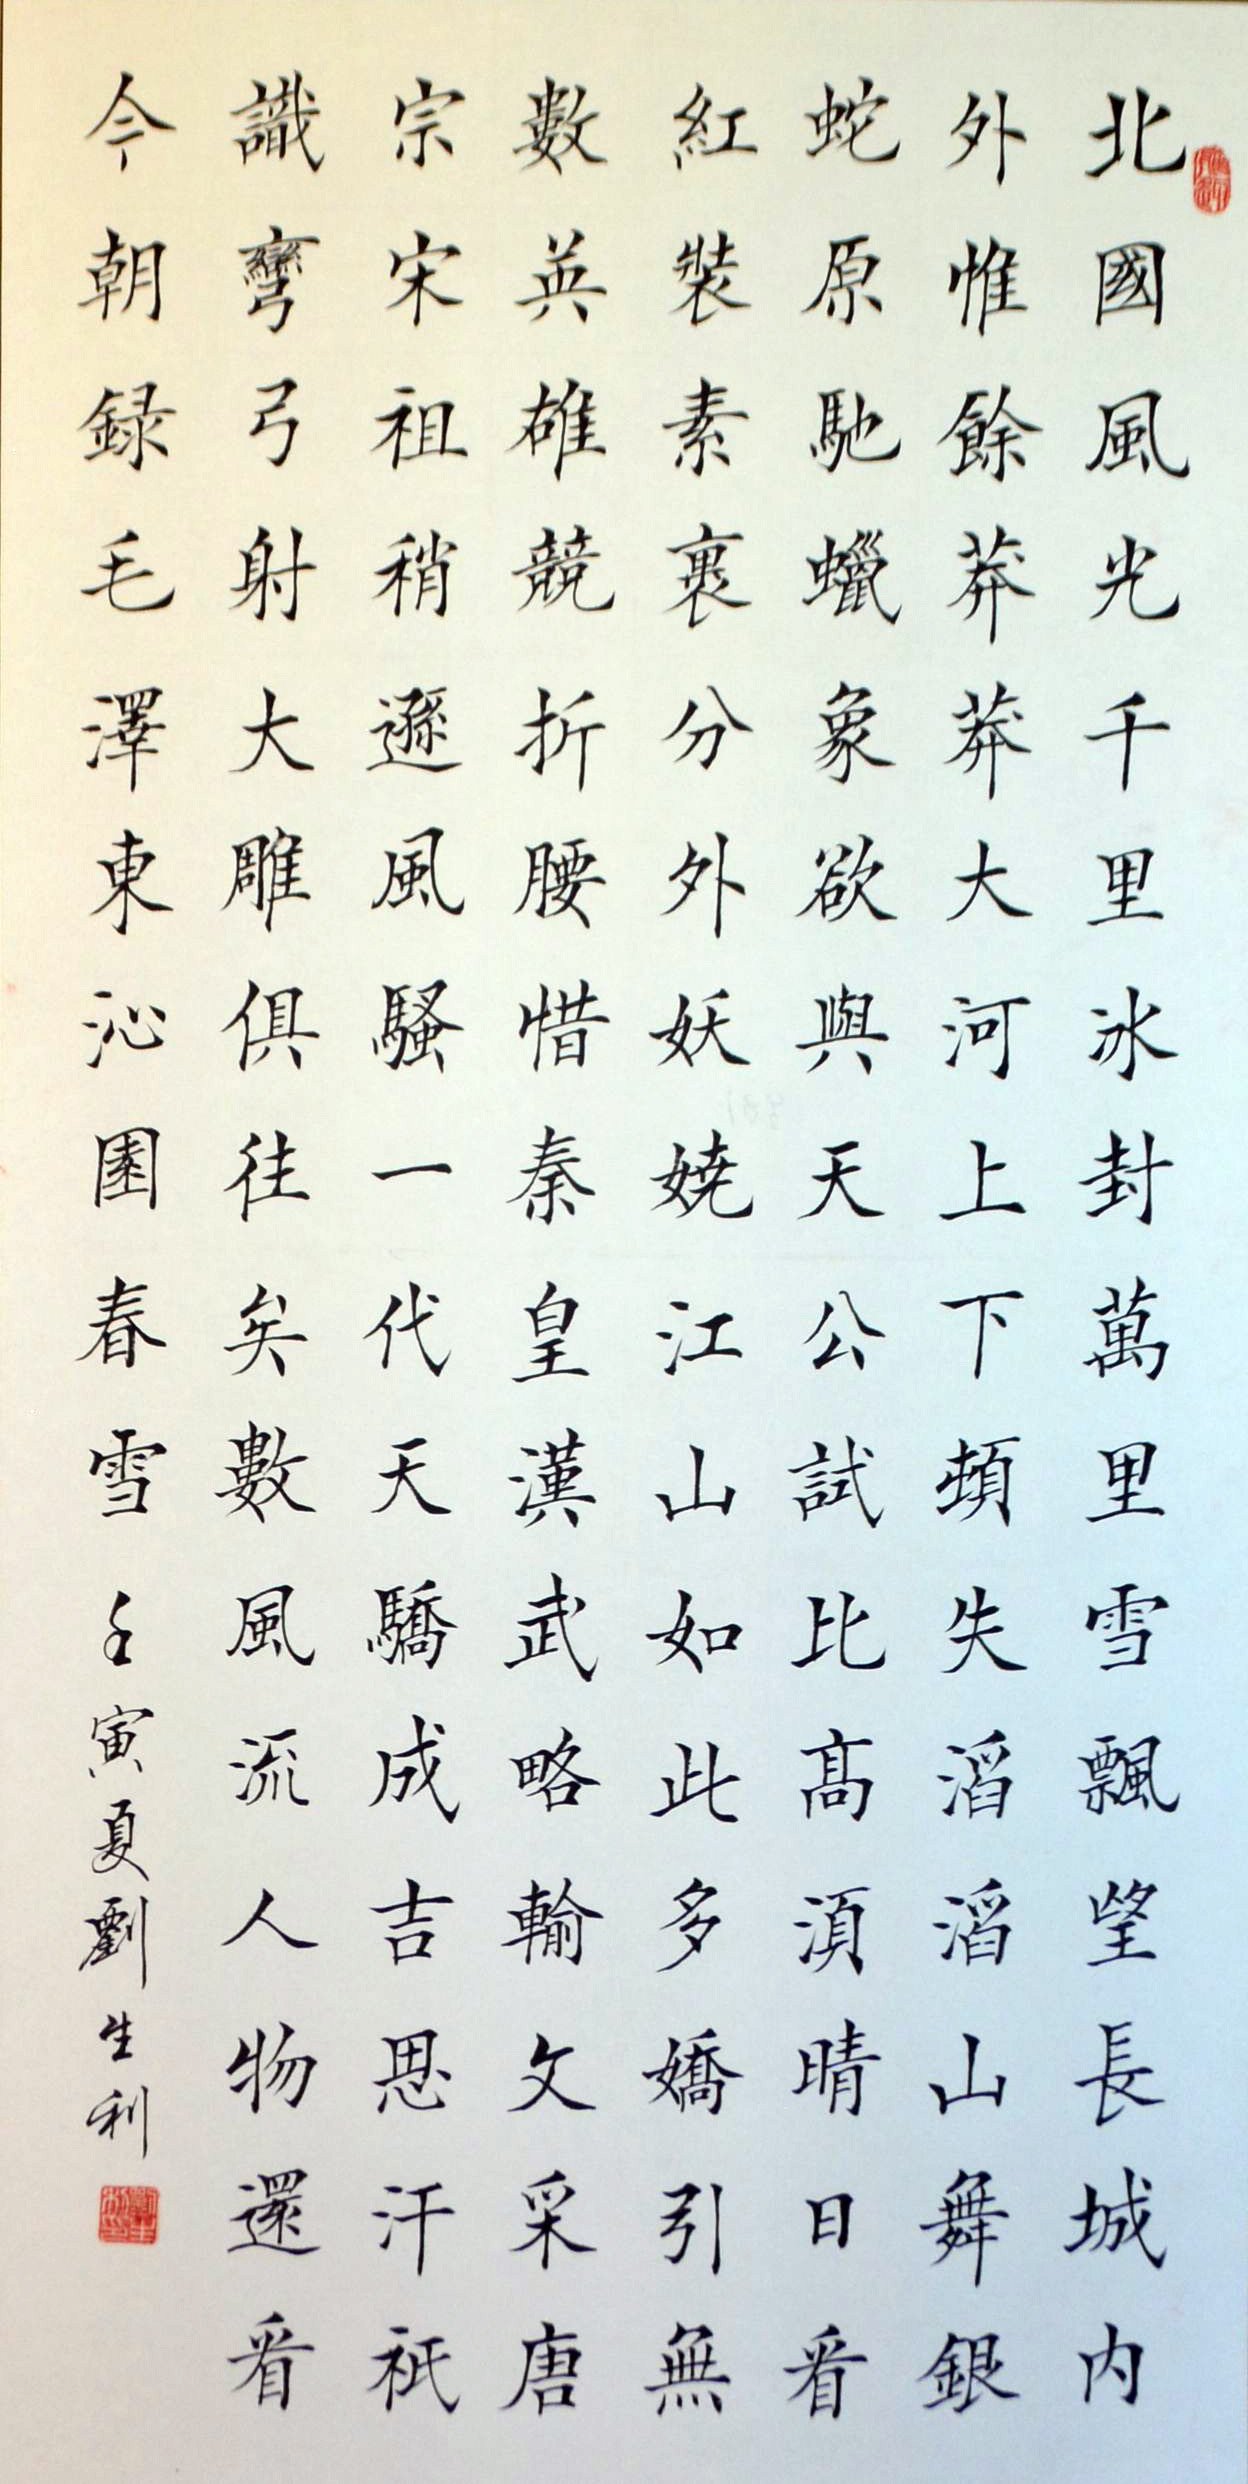 北國風光千里冰封萬里雪飄望長城內
外惟餘莽莽大河上下頓失滔滔山舞銀
蛇原馳蠟象欲與天公試比高須晴日看
紅裝素裹分外妖嬈江山如此多嬌引無
數英雄競折腰惜秦皇漢武略輸文采唐
宗宋祖稍遜風騷一代天驕成吉思汗祇
識彎弓射大雕俱往矣數風流人物還看
今朝録毛澤東沁園春雪壬寅夏劉生利